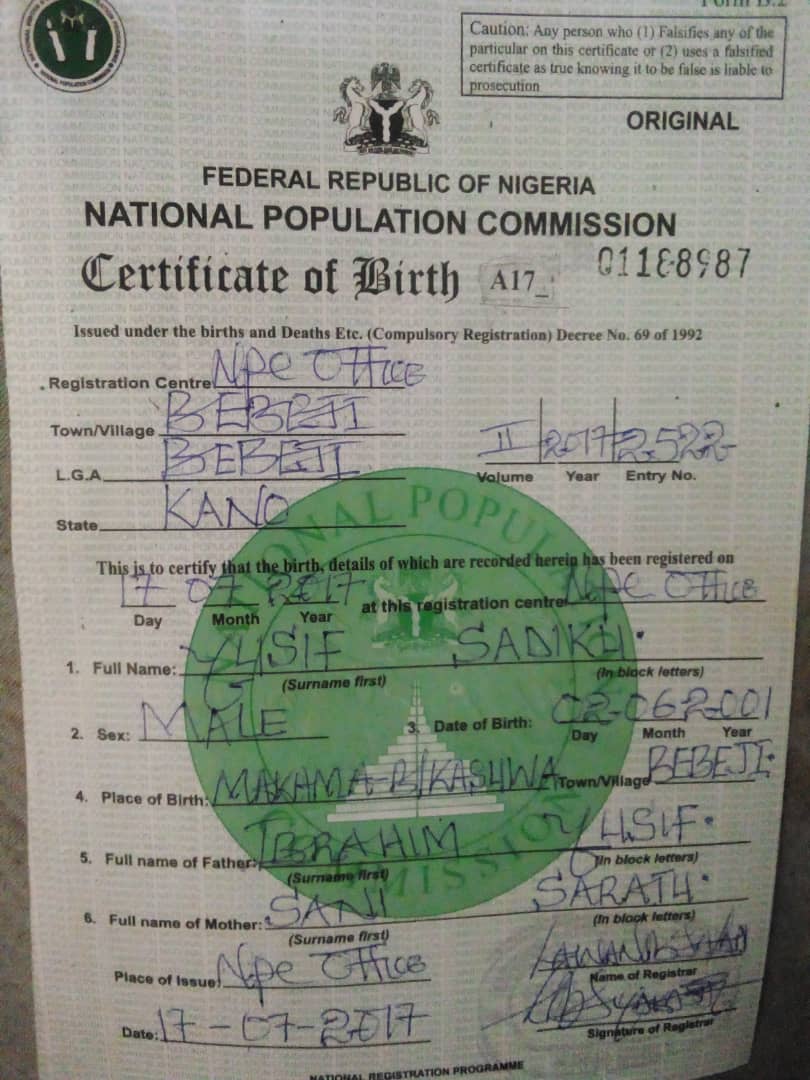 Form B.2
Caution: Any person who (1) Falsifies any of the
particular on this certificate or (2) uses a falsified
certificate as true knowing it to be false is liable to
prosecution
ORIGINAL
FEDERAL REPUBLIC OF NIGERIA
NATIONAL POPULATION COMMISSION
Certificate of Birth A17_ 01188987
Issued under the births and Deaths Etc. (Compulsory Registration) Decree No. 69 of 1992
Registration Centre NPC OFFICE
Town/Village BEBEJI
L.G.A BEBEJI
II 2017 2522
Volume Year Entry No.
State KANO
This is to certify that the birth, details of which are recorded herein has been registered on
17 07 2017 at this registration centre NPC OFFICE
Day Month Year
1. Full Name: YUSIF SADIKU.
(Surname first) (In block letters)
2. Sex: MALE 3. Date of Birth: 02-06 2001
Day Month Year
4. Place of Birth: MAKAMA-B/KASUWA Town/Village BEBEJI.
5. Full name of Father: IBRAHIM YUSIF.
(Surname first) (In block letters)
6. Full name of Mother: SANI SARATU.
(Surname first) (In block letters)
Place of Issue: NPC OFFICE
Name of Registrar
Date: 17-07-2017
Signature of Registrar
NATIONAL REGISTRATION PROGRAMME